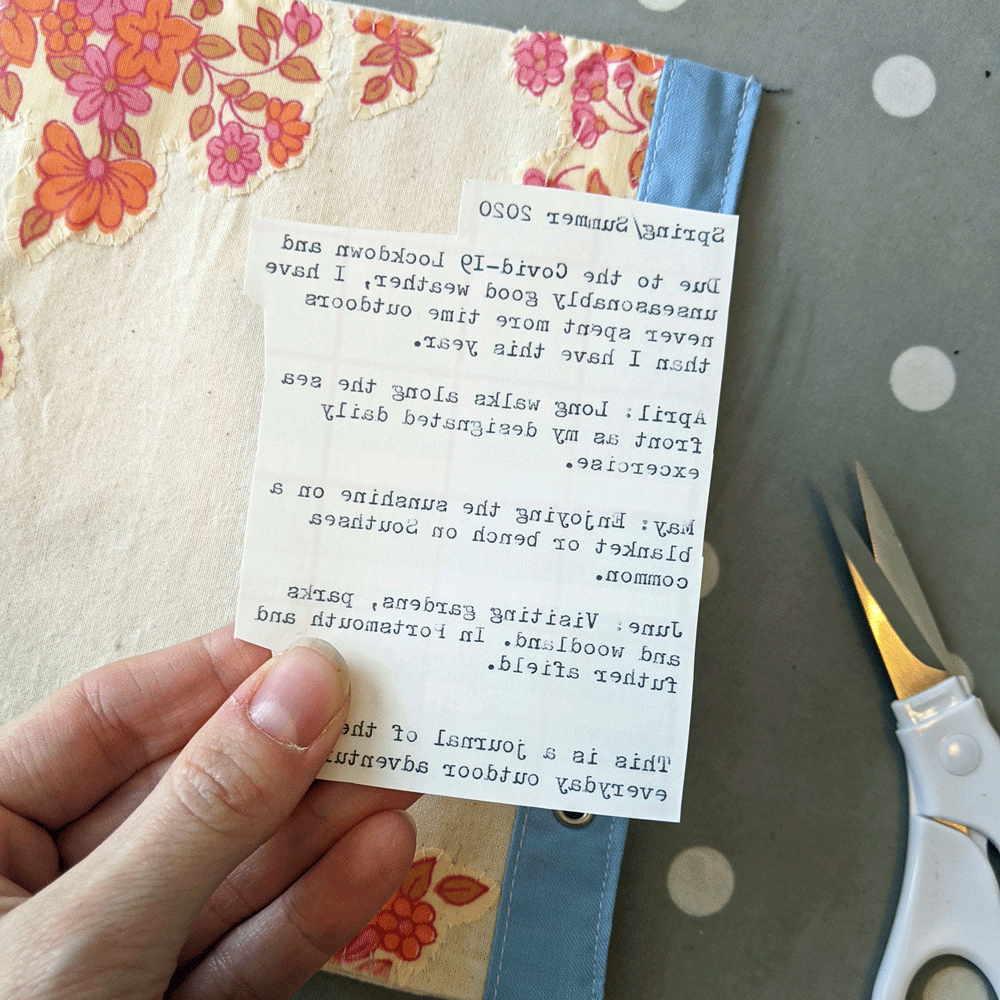 Spring/Summer 2020
Due to the Covid-19 Lockdown and
unseasonably good weather, I have
never spent more time outdoors
than I have this year.
April: Long walks along the sea
front as my designated daily
excercise.
May: Enjoying the sunshine on a
blanket or bench on Southsea
common.
June: Visiting gardens, parks
and woodland. In Portsmouth and
futher afield.
This is a journal of the
everyday outdoor